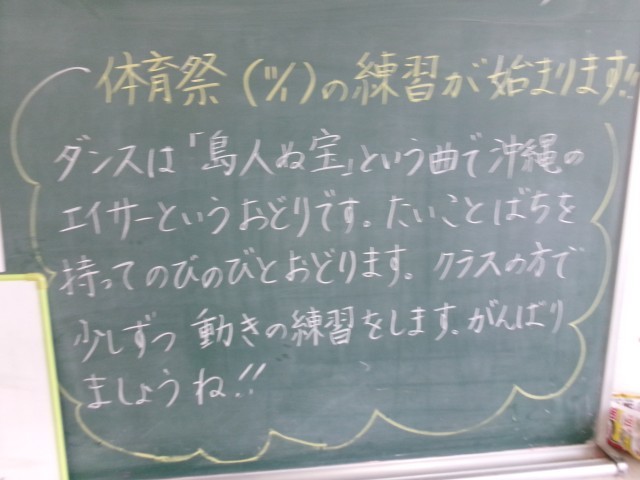 体育祭(11/1)の練習が始まります!!
ダンスは「島人ぬ宝」という曲で沖縄の
エイサーというおどりです。たいことばちを
持ってのびのびとおどります。クラスの方で
少しずつ動きの練習をします。がんばり
ましょうね!!